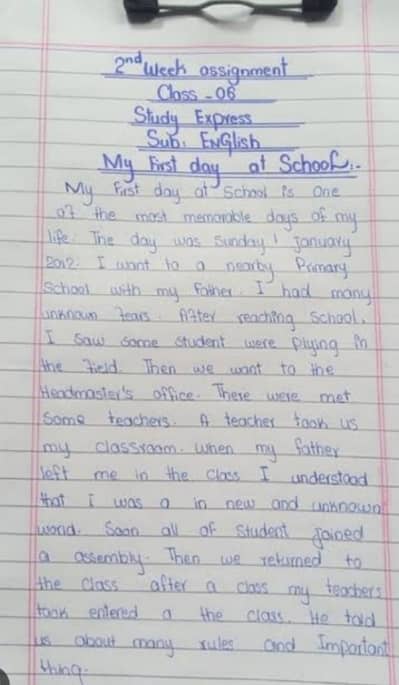 2nd Week assignment
Class - 06
Study Express
Sub: ENGlish
My First day at School:-
My First day at School is One
of the most memorable days of my
life. The day was Sunday 1 january
2012. I want to a nearby Primary
School with my Father. I had many
unknown Fears. AFter reaching School,
I Saw Some Student were Plying in
the Field. Then we want to the
Headmaster's office. There were met
Some teachers. A teacher took us
my classroom. when my father
left me in the Class I understood
that I was a in new and unknown
world. Soon all of Student joined
a assembly. Then we returned to
the class after a class my teachers
took entered a the class. He told
us about many rules and Important
thing.